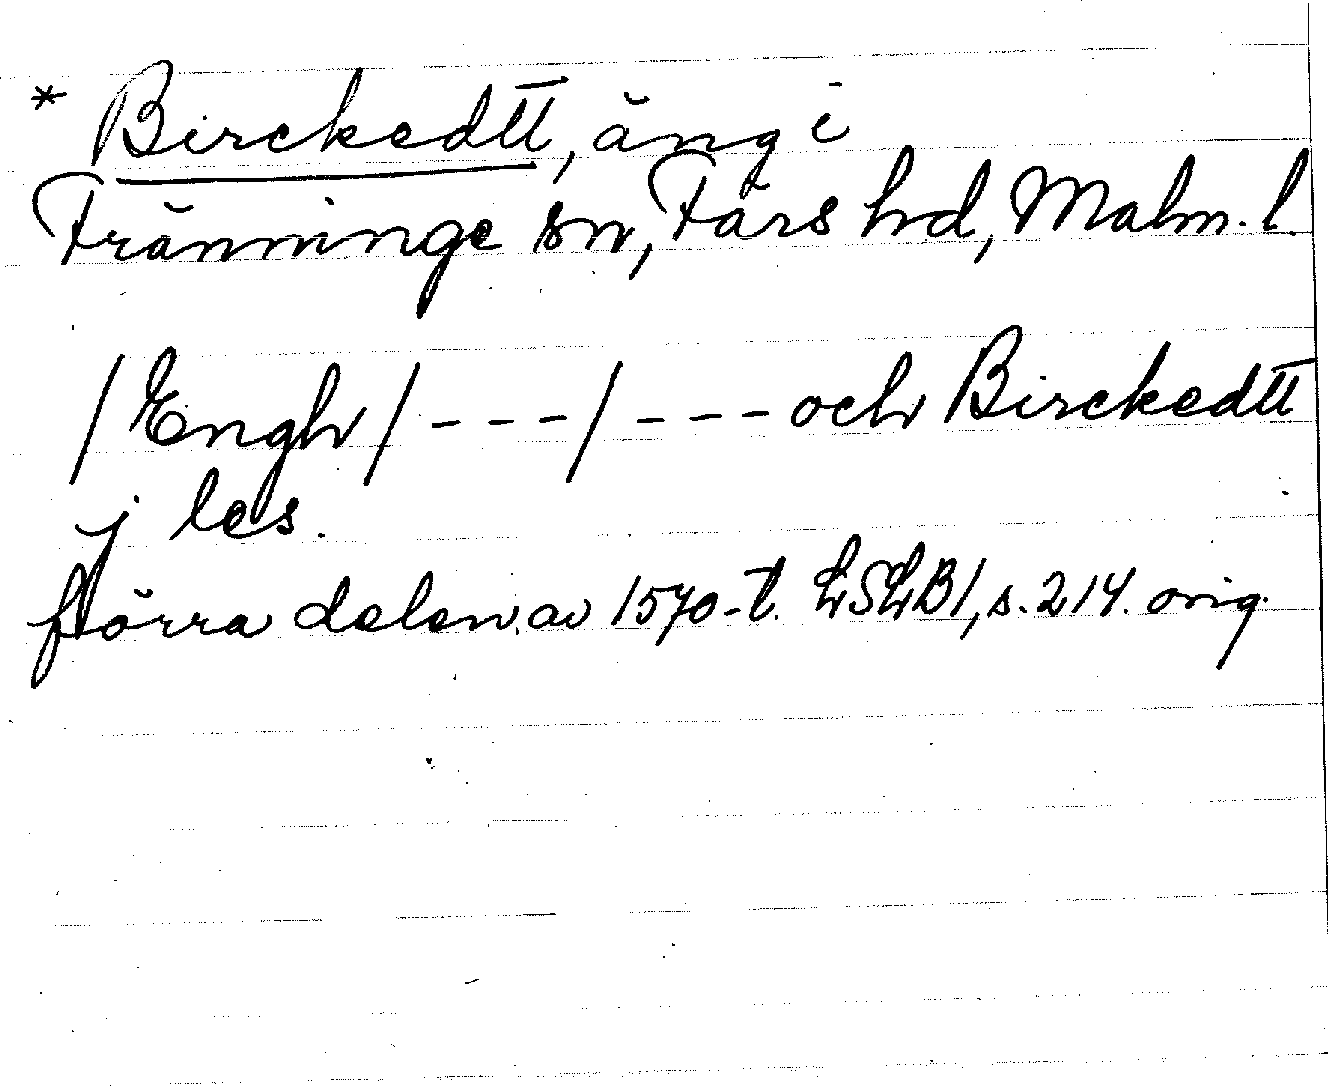 * Birckedtt, äng i
Tränninge sn, Färs hd, Malm. l.
/Engh/ - - - / - - - och Birckedtt
j les.
förra delen av 1570-t. LSLB1, s. 214. orig.